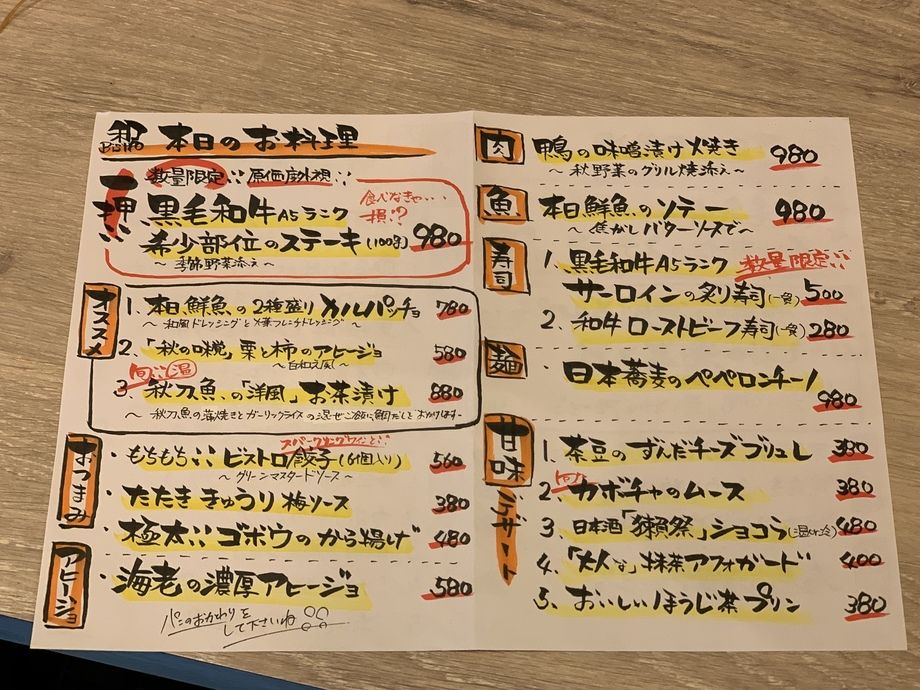 本日のお料理
一押し
数量限定 原価度外視
食べなきゃ…損!?
黒毛和牛A5ランク
希少部位のステーキ(100g) 980
～季節野菜添え～
オススメ
1. 本日鮮魚の2種盛りカルパッチョ 780
2. 「秋の味覚」栗と柿のアヒージョ 580
～白和え風～
旬 温
3. 秋刀魚の「洋風」お茶漬け 880
～秋刀魚の蒲焼きとガーリックライスの混ぜご飯に鯛だしをかけます～
おつまみ
スパークリングワインと
・もちもち ビストロ餃子(6個入り) 560
～グリーンマスタードソース～
・たたききゅうり梅ソース 380
・極太 ゴボウのから揚げ 480
アヒージョ
・海老の濃厚アヒージョ 580
パンのおかわりをして下さいね
肉
鴨の味噌漬け焼き 980
～秋野菜のグリル焼添え～
魚
本日鮮魚のソテー 980
～焦がしバターソースで～
寿司
1. 黒毛和牛A5ランク 数量限定
サーロインの炙り寿司(一貫) 500
2. 和牛ローストビーフ寿司(一貫) 280
麺
日本蕎麦のペペロンチーノ 980
甘味
デザート
1. 茶豆のずんだチーズブリュレ 380
旬
2. カボチャのムース 380
3. 日本酒「獺祭」ショコラ 480
4. 抹茶アフォガード 400
5. おいしいほうじ茶プリン 380